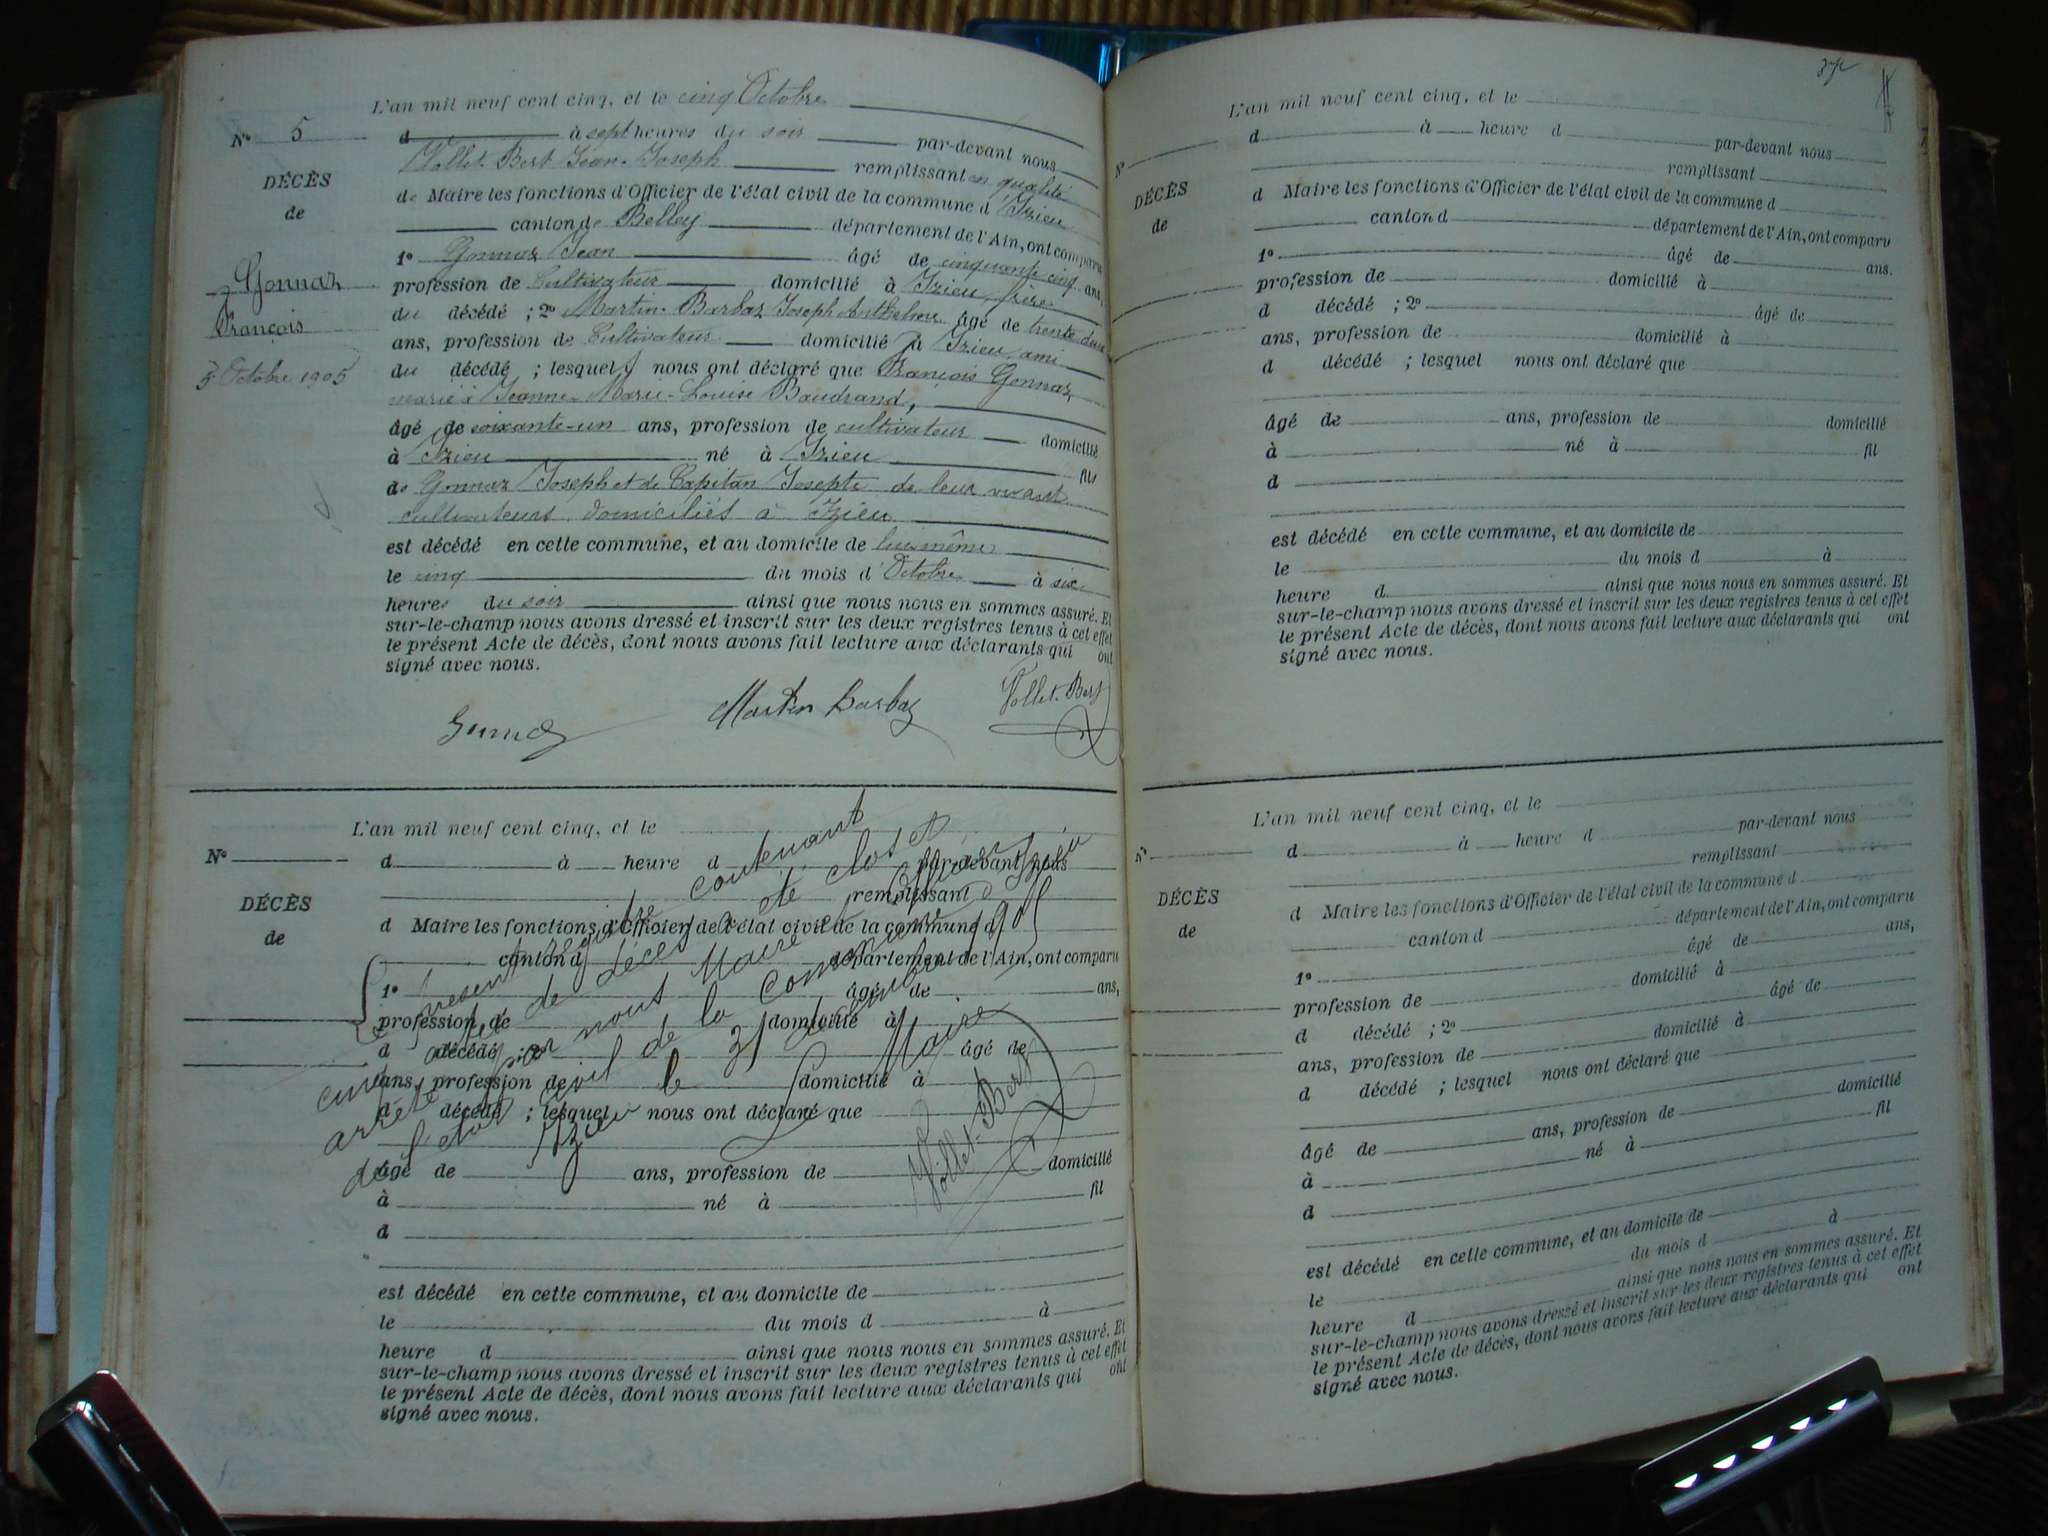 L'an mil neuf cent cinq, et le cinq Octobre
N° 5
d à sept heures du soir par-devant nous
Vollet-Bert Jean-Joseph remplissant en qualité
DÉCÈS
de Maire les fonctions d'Officier de l'état civil de la commune d'Izieu
de
canton de Belley département de l'Ain, ont comparu
1° Gonnaz Jean âgé de cinquante cinq ans,
Gonnaz
profession de Cultivateur domicilié à Izieu, frère
François
du décédé ; 2° Martin-Barbaz Joseph Anthelme âgé de trente deux
ans, profession de Cultivateur domicilié à Izieu, ami
5 Octobre 1905
du décédé ; lesquels nous ont déclaré que François Gonnaz
marié à Jeanne-Marie-Louise Baudrand,
âgé de soixante-un ans, profession de cultivateur domicilié
à Izieu né à Izieu fils
de Gonnaz Joseph et de Capitan Josepte de leur vivant
cultivateurs domiciliés à Izieu
est décédé en cette commune, et au domicile de lui-même
le cinq du mois d'Octobre à six
heures du soir ainsi que nous nous en sommes assuré. Et
sur-le-champ nous avons dressé et inscrit sur les deux registres tenus à cet effet
le présent Acte de décès, dont nous avons fait lecture aux déclarants qui ont
signé avec nous.
Martin Barbaz
Vollet-Bert
L'an mil neuf cent cinq, et le
N°
d à heure d par-devant nous
remplissant
DÉCÈS
d Maire les fonctions d'Officier de l'état civil de la commune d
de
canton d département de l'Ain, ont comparu
1° âgé de ans,
profession de domicilié à
d décédé ; 2° âgé de
ans, profession de domicilié à
d décédé ; lesquel nous ont déclaré que
âgé de ans, profession de domicilié
à né à fil
d
est décédé en cette commune, et au domicile de
le du mois d à
heure d ainsi que nous nous en sommes assuré. Et
sur-le-champ nous avons dressé et inscrit sur les deux registres tenus à cet effet
le présent Acte de décès, dont nous avons fait lecture aux déclarants qui ont
signé avec nous.
Le présent registre contenant
cinq actes de décès a été clos et
arrêté par nous Maire et Officier
de l'état civil de la commune d'Izieu
Izieu le 31 décembre 1905
Le Maire
Vollet-Bert
L'an mil neuf cent cinq, et le
N°
d à heure d par-devant nous
remplissant
DÉCÈS
d Maire les fonctions d'Officier de l'état civil de la commune d
de
canton d département de l'Ain, ont comparu
1° âgé de ans.
profession de domicilié à
d décédé ; 2° âgé de
ans, profession de domicilié à
d décédé ; lesquel nous ont déclaré que
âgé de ans, profession de domicilié
à né à fil
d
est décédé en cette commune, et au domicile de
le du mois d à
heure d ainsi que nous nous en sommes assuré. Et
sur-le-champ nous avons dressé et inscrit sur les deux registres tenus à cet effet
le présent Acte de décès, dont nous avons fait lecture aux déclarants qui ont
signé avec nous.
L'an mil neuf cent cinq, et le
N°
d à heure d par-devant nous
remplissant
DÉCÈS
d Maire les fonctions d'Officier de l'état civil de la commune d
de
canton d département de l'Ain, ont comparu
1° âgé de ans,
profession de domicilié à
d décédé ; 2° âgé de
ans, profession de domicilié à
d décédé ; lesquel nous ont déclaré que
âgé de ans, profession de domicilié
à né à fil
d
est décédé en cette commune, et au domicile de
le du mois d à
heure d ainsi que nous nous en sommes assuré. Et
sur-le-champ nous avons dressé et inscrit sur les deux registres tenus à cet effet
le présent Acte de décès, dont nous avons fait lecture aux déclarants qui ont
signé avec nous.